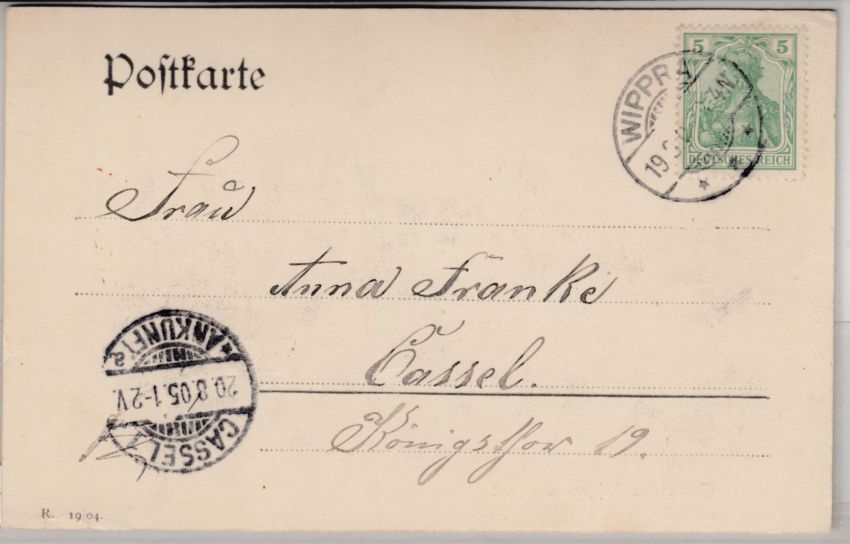 Postkarte
5 5
DEUTSCHES REICH
WIPPRA
19.8
Frau
Anna Franke
Cassel.
Königsthor 19.
CASSEL
20.8.05.1-2V.
*ANKUNFT*
R. 1904.